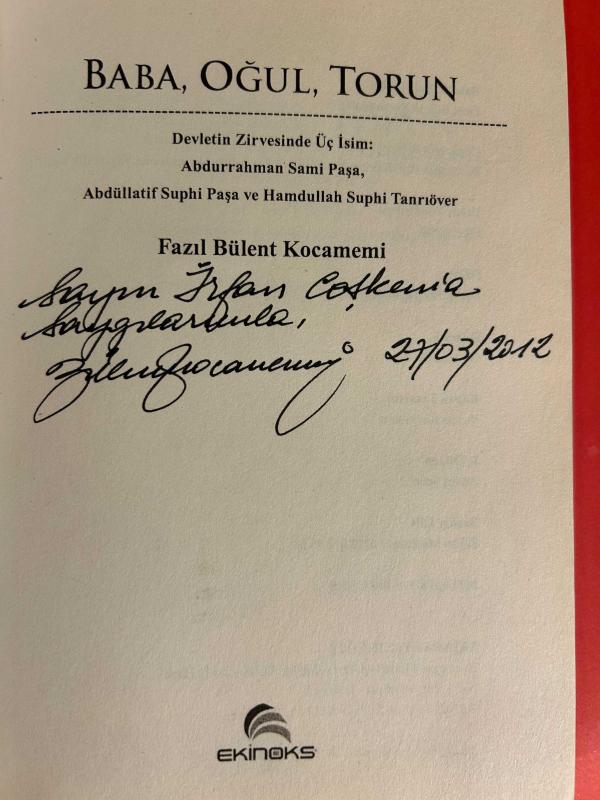 BABA, OĞUL, TORUN
Devletin Zirvesinde Üç İsim:
Abdurrahman Sami Paşa,
Abdüllatif Suphi Paşa ve Hamdullah Suphi Tanrıöver
Fazıl Bülent Kocamemi
Sayın İrfan
Saygılarımla,
27/03/2012
EKİNOKS